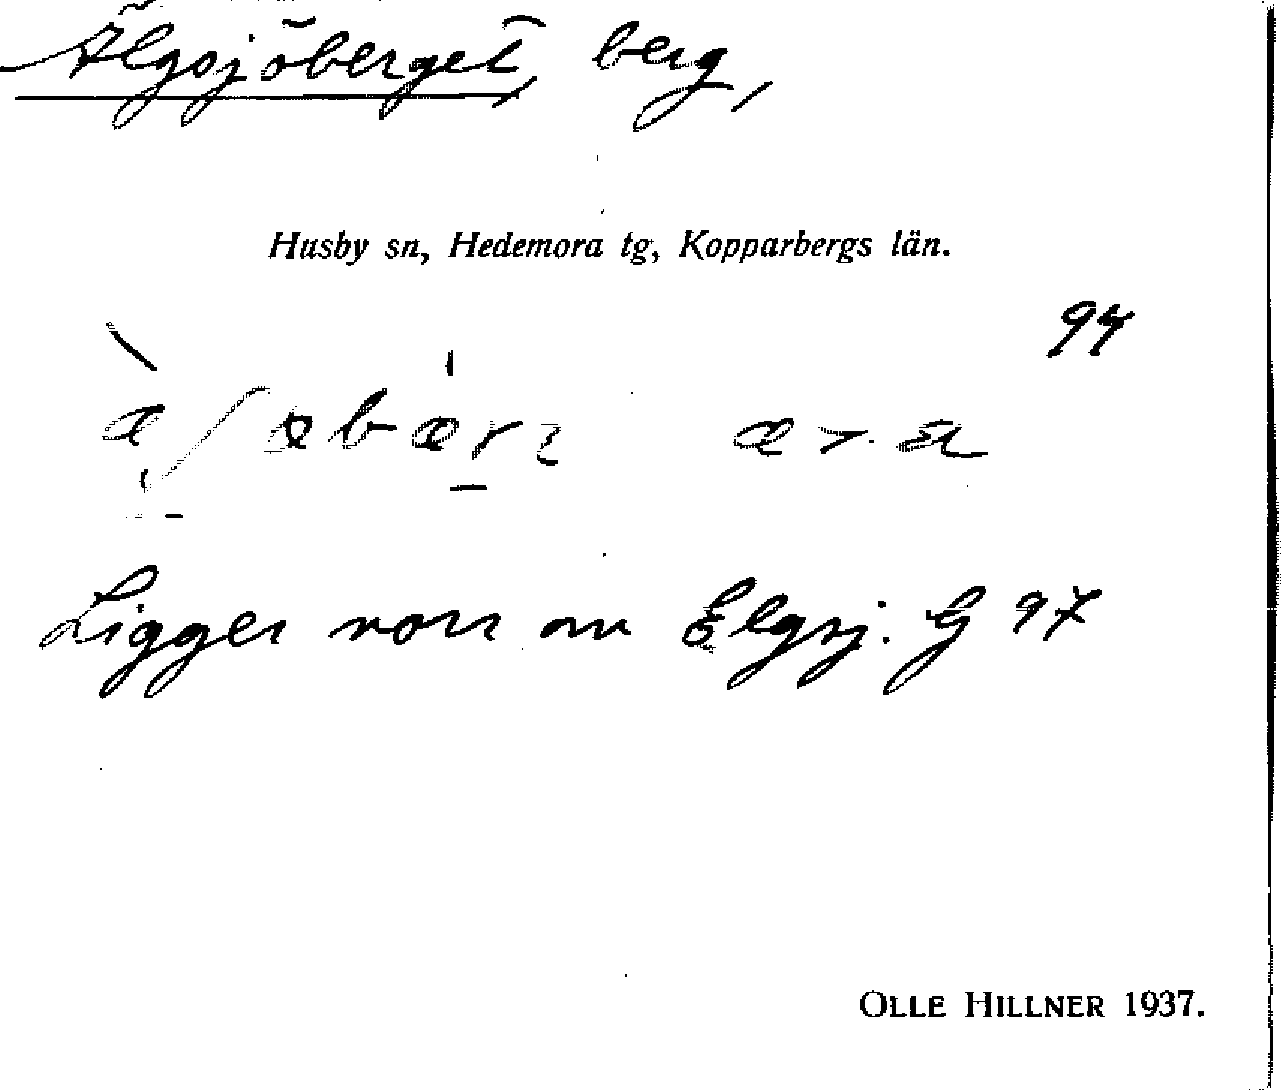 Älgsjöberget, berg,
Husby sn, Hedemora tg, Kopparbergs län.
94
Ligger norr om Elgsj. G 97
OLLE HILLNER 1937.